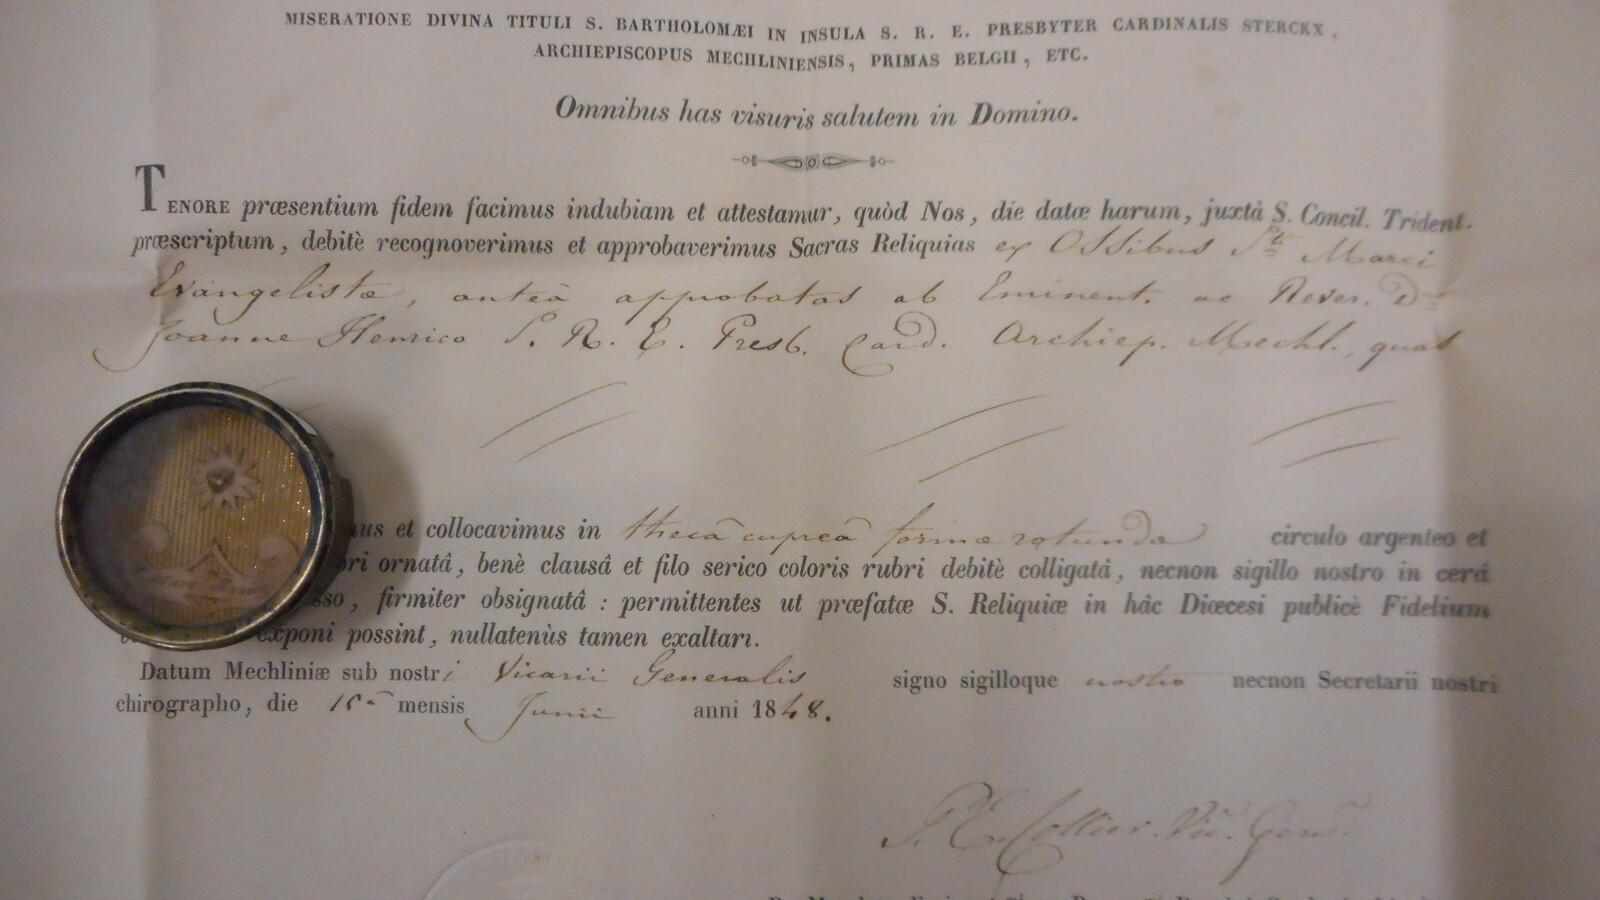 MISERATIONE DIVINA TITULI S. BARTHOLOMÆI IN INSULA S. R. E. PRESBYTER CARDINALIS STERCKX,
ARCHIEPISCOPUS MECHLINIENSIS, PRIMAS BELGII, ETC.
Omnibus has visuris salutem in Domino.
TENORE præsentium fidem facimus indubiam et attestamur, quòd Nos, die datæ harum, juxtà S. Concil. Trident.
præscriptum, debitè recognoverimus et approbaverimus Sacras Reliquias ex Ossibus Sti Marci
Evangelistæ, anteà approbatas ab Eminent. ac Rever. Dno
Joanne Henrico S. R. E. Presb. Card. Archiep. Mechl., quas
et collocavimus in thecâ cupreâ formæ rotundæ circulo argenteo et
ornatâ, benè clausâ et filo serico coloris rubri debitè colligatâ, necnon sigillo nostro in cerâ
firmiter obsignatâ : permittentes ut præfatæ S. Reliquiæ in hâc Diœcesi publicè Fidelium
exponi possint, nullatenùs tamen exaltari.
Datum Mechliniæ sub nostri Vicarii Generalis signo sigilloque nostro necnon Secretarii nostri
chirographo, die mensis Junii anni 1848.
P. C. Collier. Vic. Gen.